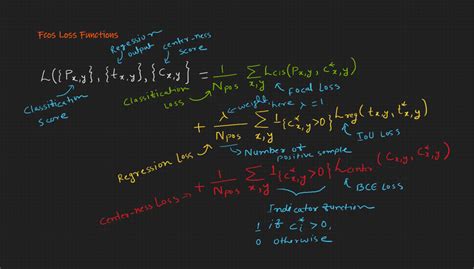 Fcos Loss Functions
Regression output
center-ness score
L({Px,y}, {tx,y}, {Cx,y}) = 1/Npos Σx,y Lcls(Px,y, c*x,y)
Classification score
Classification Loss
Focal Loss
λ → weight here λ = 1
+ λ/Npos Σx,y 1{c*x,y>0} Lreg(tx,y, t*x,y)
Regression Loss
IoU Loss
Number of positive sample
+ 1/Npos Σx,y 1{c*x,y>0} Lcntr(Cx,y, C*x,y)
center-ness Loss
BCE Loss
Indicator function
1 if c*i > 0,
0 otherwise